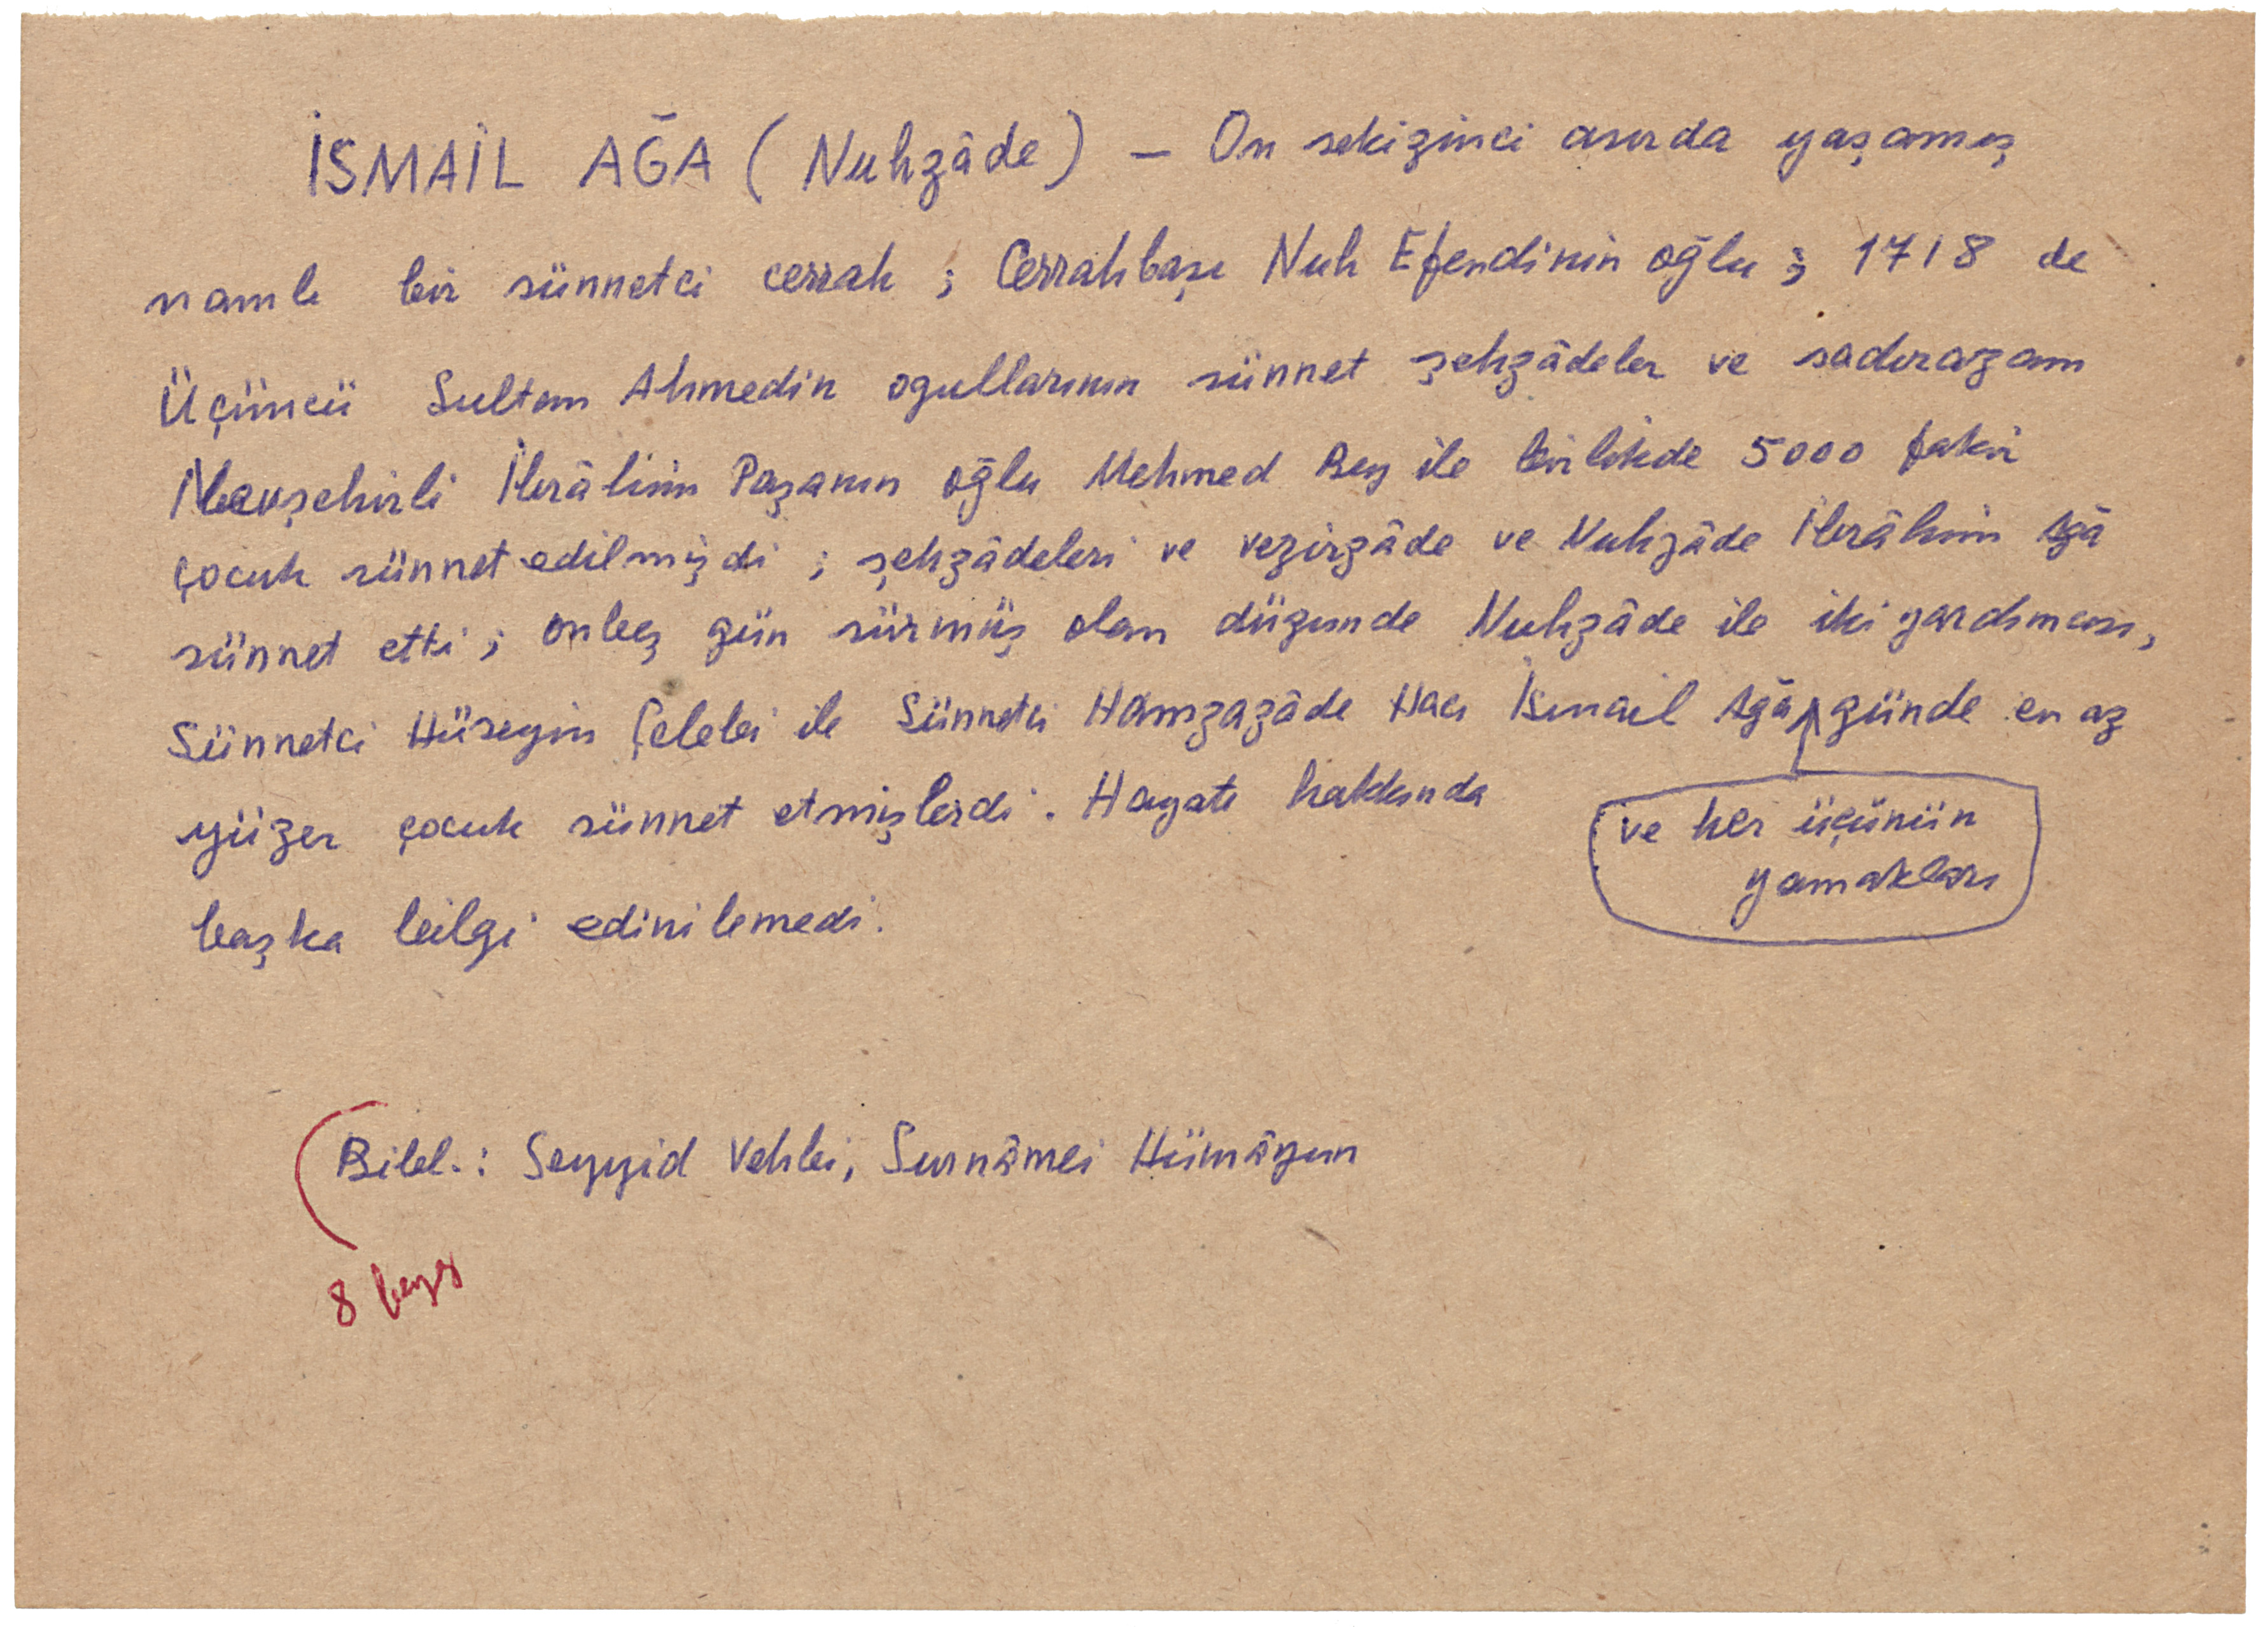 İSMAİL AĞA (Nuhzâde) — On sekizinci asırda yaşamış
namlı bir sünnetci cerrah ; Cerrahbaşı Nuh Efendinin oğlu ; 1718 de
Üçüncü Sultan Ahmedin ogullarının sünnet şehzâdeler ve sadırazam
Nevşehirli İbrâhim Paşanın oğlu Mehmed Bey ile birlikde 5000 fakir
çocuk sünnet edilmişdi ; şehzâdeleri ve vezirzâde ve Nuhzâde İbrâhim Ağa
sünnet etti ; onbeş gün sürmüş olan düğünde Nuhzâde ile iki yardımcısı,
Sünnetci Hüseyin Çelebi ile Sünnetci Hamzazâde Hacı İsmail Ağa günde en az
ve her üçünün
yamakları
yüzer çocuk sünnet etmişlerdi. Hayatı hakkında
başka bilgi edinilemedi.
Bibl.: Seyyid Vehbi, Surnâmei Hümâyun
8 beyz